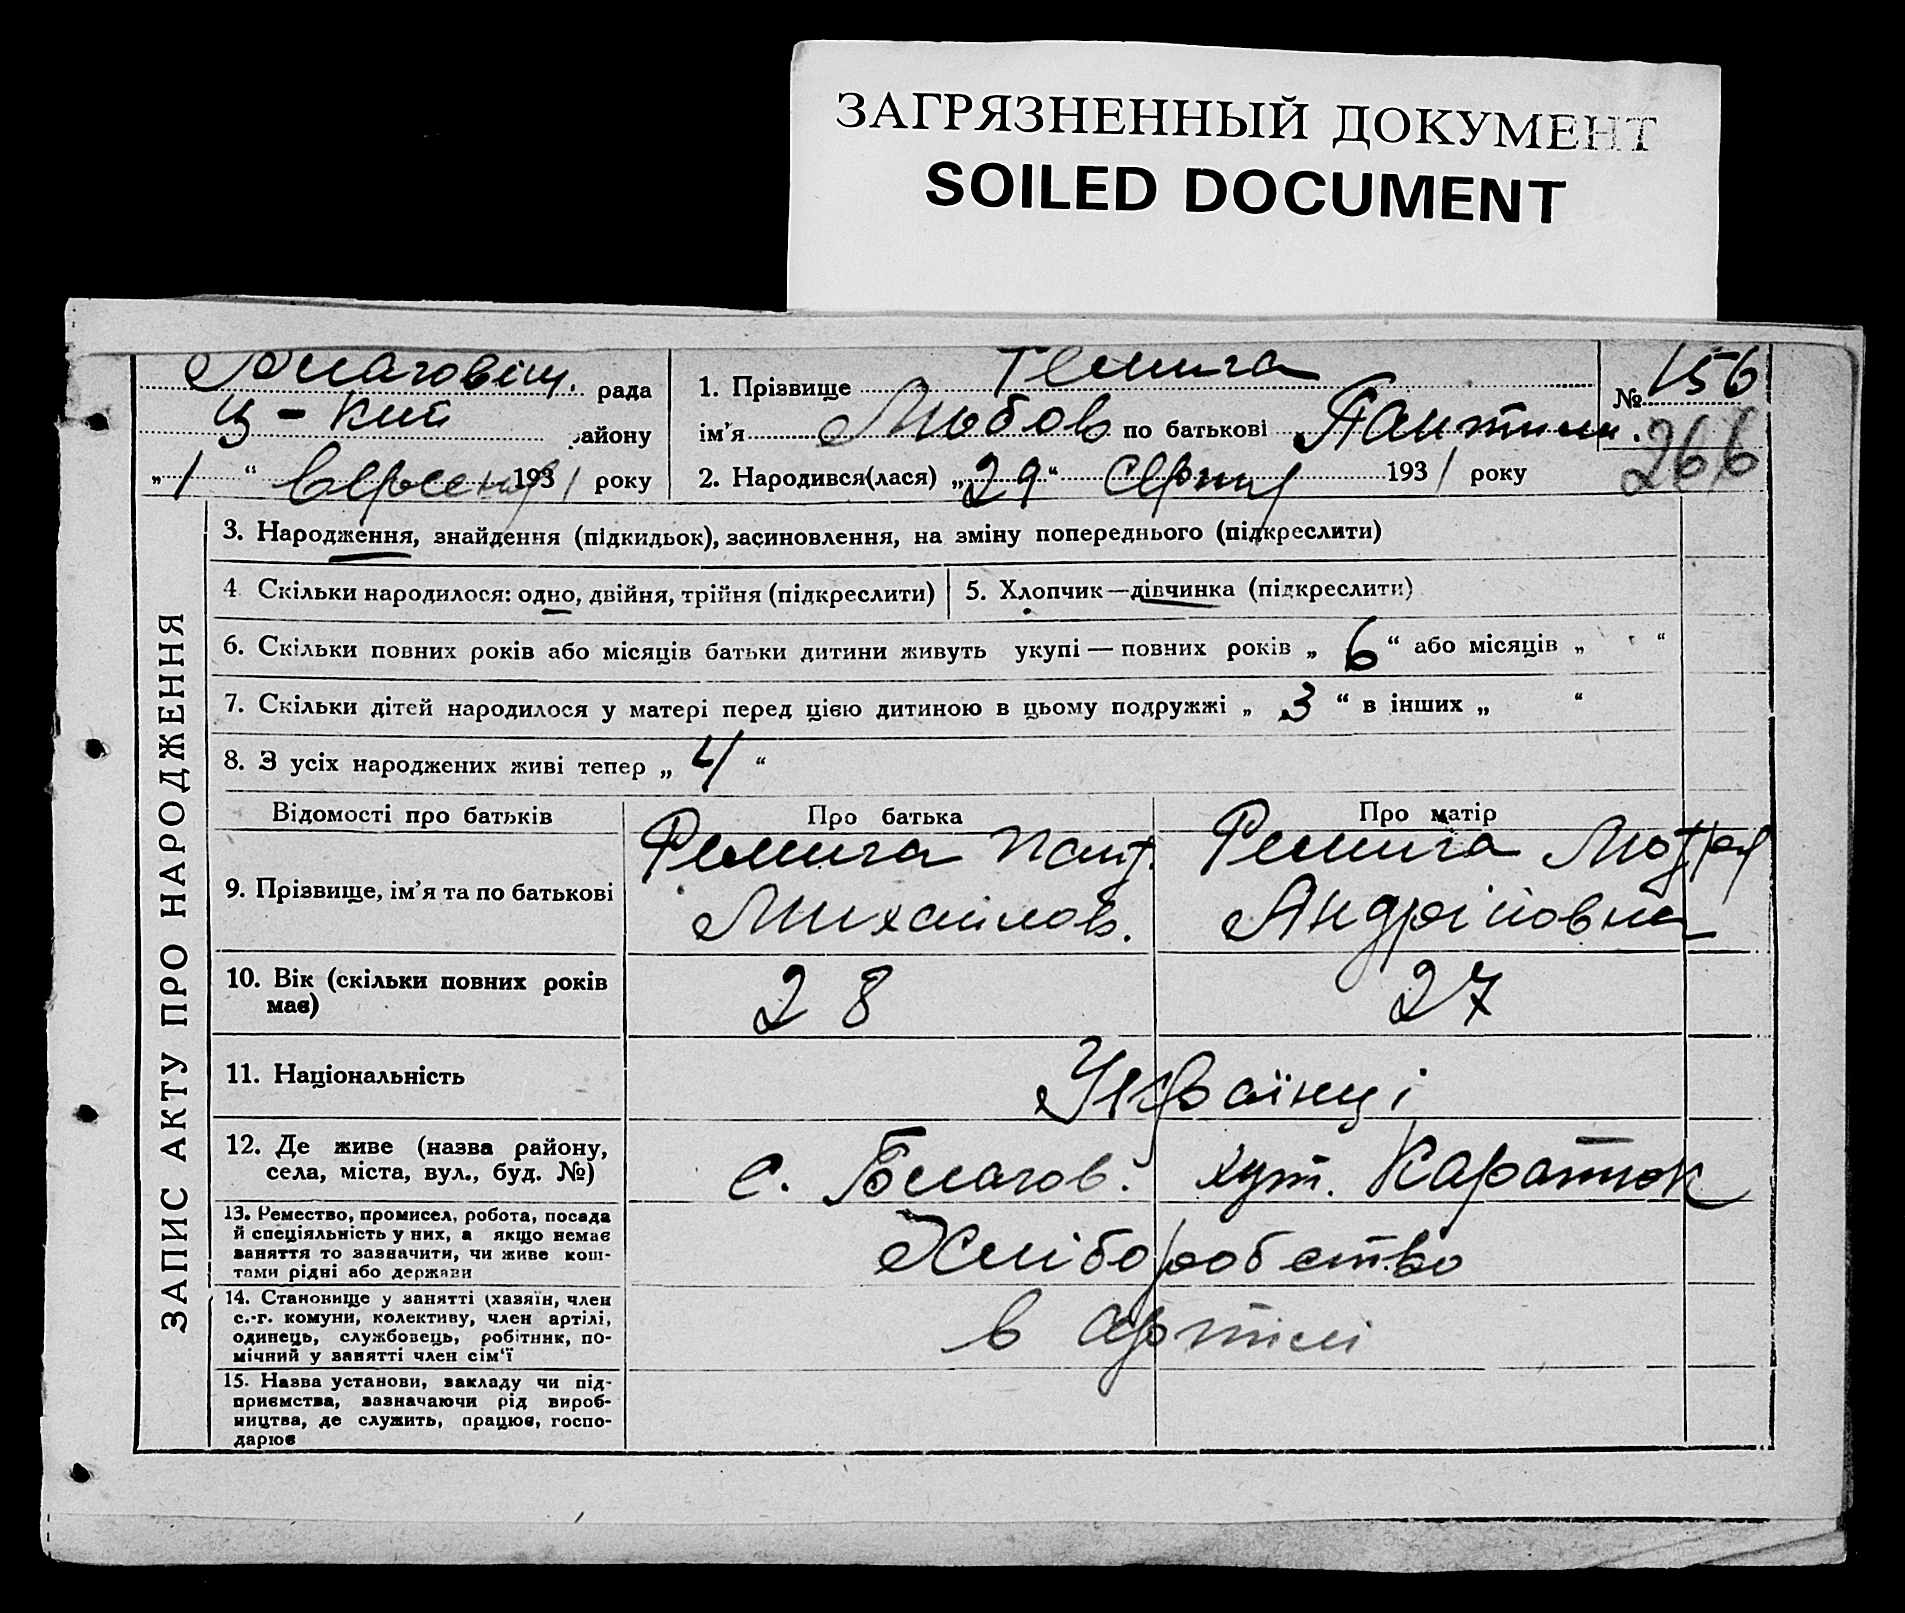 ЗАГРЯЗНЕННЫЙ ДОКУМЕНТ
SOILED DOCUMENT
Благовіщ. рада
Ц-кий району
„1“ Вересня 1931 року
1. Прізвище Ремига
ім’я Любов по батькові Пантилм.
2. Народився(лася) „29“ Серпня 1931 року
№ 156
266
ЗАПИС АКТУ ПРО НАРОДЖЕННЯ
3. Народження, знайдення (підкидьок), засиновлення, на зміну попереднього (підкреслити)
4 Скільки народилося: одно, двійня, трійня (підкреслити)
5. Хлопчик—дівчинка (підкреслити)
6. Скільки повних років або місяців батьки дитини живуть укупі — повних років „6“ або місяців „ “
7. Скільки дітей народилося у матері перед цією дитиною в цьому подружжі „3“ в інших „ “
8. З усіх народжених живі тепер „4“
Відомості про батьків Про батька Про матір
9. Прізвище, ім’я та по батькові
Ремига Пант.
Михайлов.
Ремига Мотря
Андріївна
10. Вік (скільки повних років
має)
28 27
11. Національність
Українці
12. Де живе (назва району,
села, міста, вул., буд. №)
с. Благов. хут. Каратюк
13. Ремество, промисел, робота, посада
й спеціяльність у них, а якщо немає
заняття то зазначити, чи живе кош-
тами рідні або держави
Хліборобство
14. Становище у занятті (хазяїн, член
с.-г. комуни, колективу, член артілі,
одинець, службовець, робітник, по-
мічний у занятті член сім‘ї
в артілі
15. Назва установи, закладу чи під-
приємства, зазначаючи рід вироб-
ництва, де служить, працює, госпо-
дарює